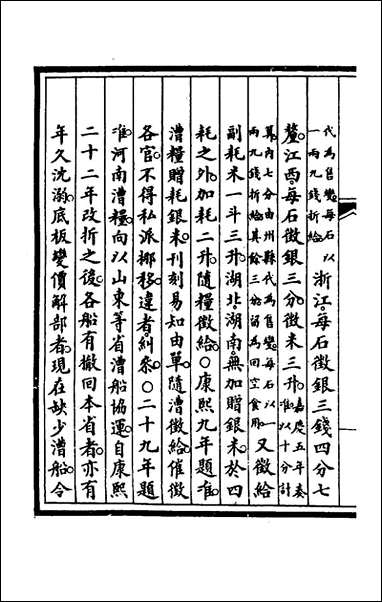 代為售變每石以一兩九錢折給浙江每石徵銀三錢四分七
釐江西每石徵銀三分徵米三升嘉慶五年奏准以十分計
算內七分由州縣代為售變每石以一兩九錢折給其餘三分留為回空食用又徵給
副耗米一斗三升湖北湖南無加贈銀米於四
耗之外加耗二升隨糧徵給○康熙九年題准
漕糧贈耗銀米刊刻易知由單隨漕徵給催徵
各官不得私派挪移違者糾參○二十九年題
准河南漕糧向以山東等省漕船協運自康熙
二十二年改折之後各船有撤回本省者亦有
年久沈溺底板變價解部者現在缺少漕船令